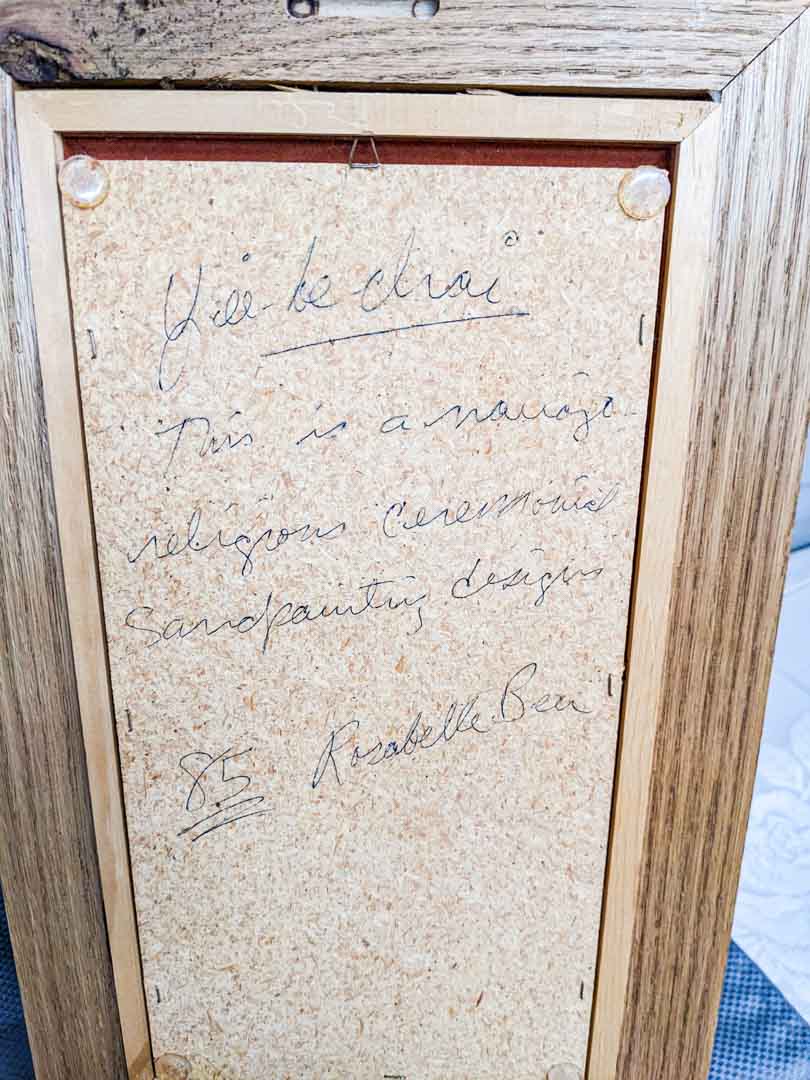 Yiee-be-chai
This is a navajo
religious ceremonial
Sandpainting designs
85 Rosabelle Ben